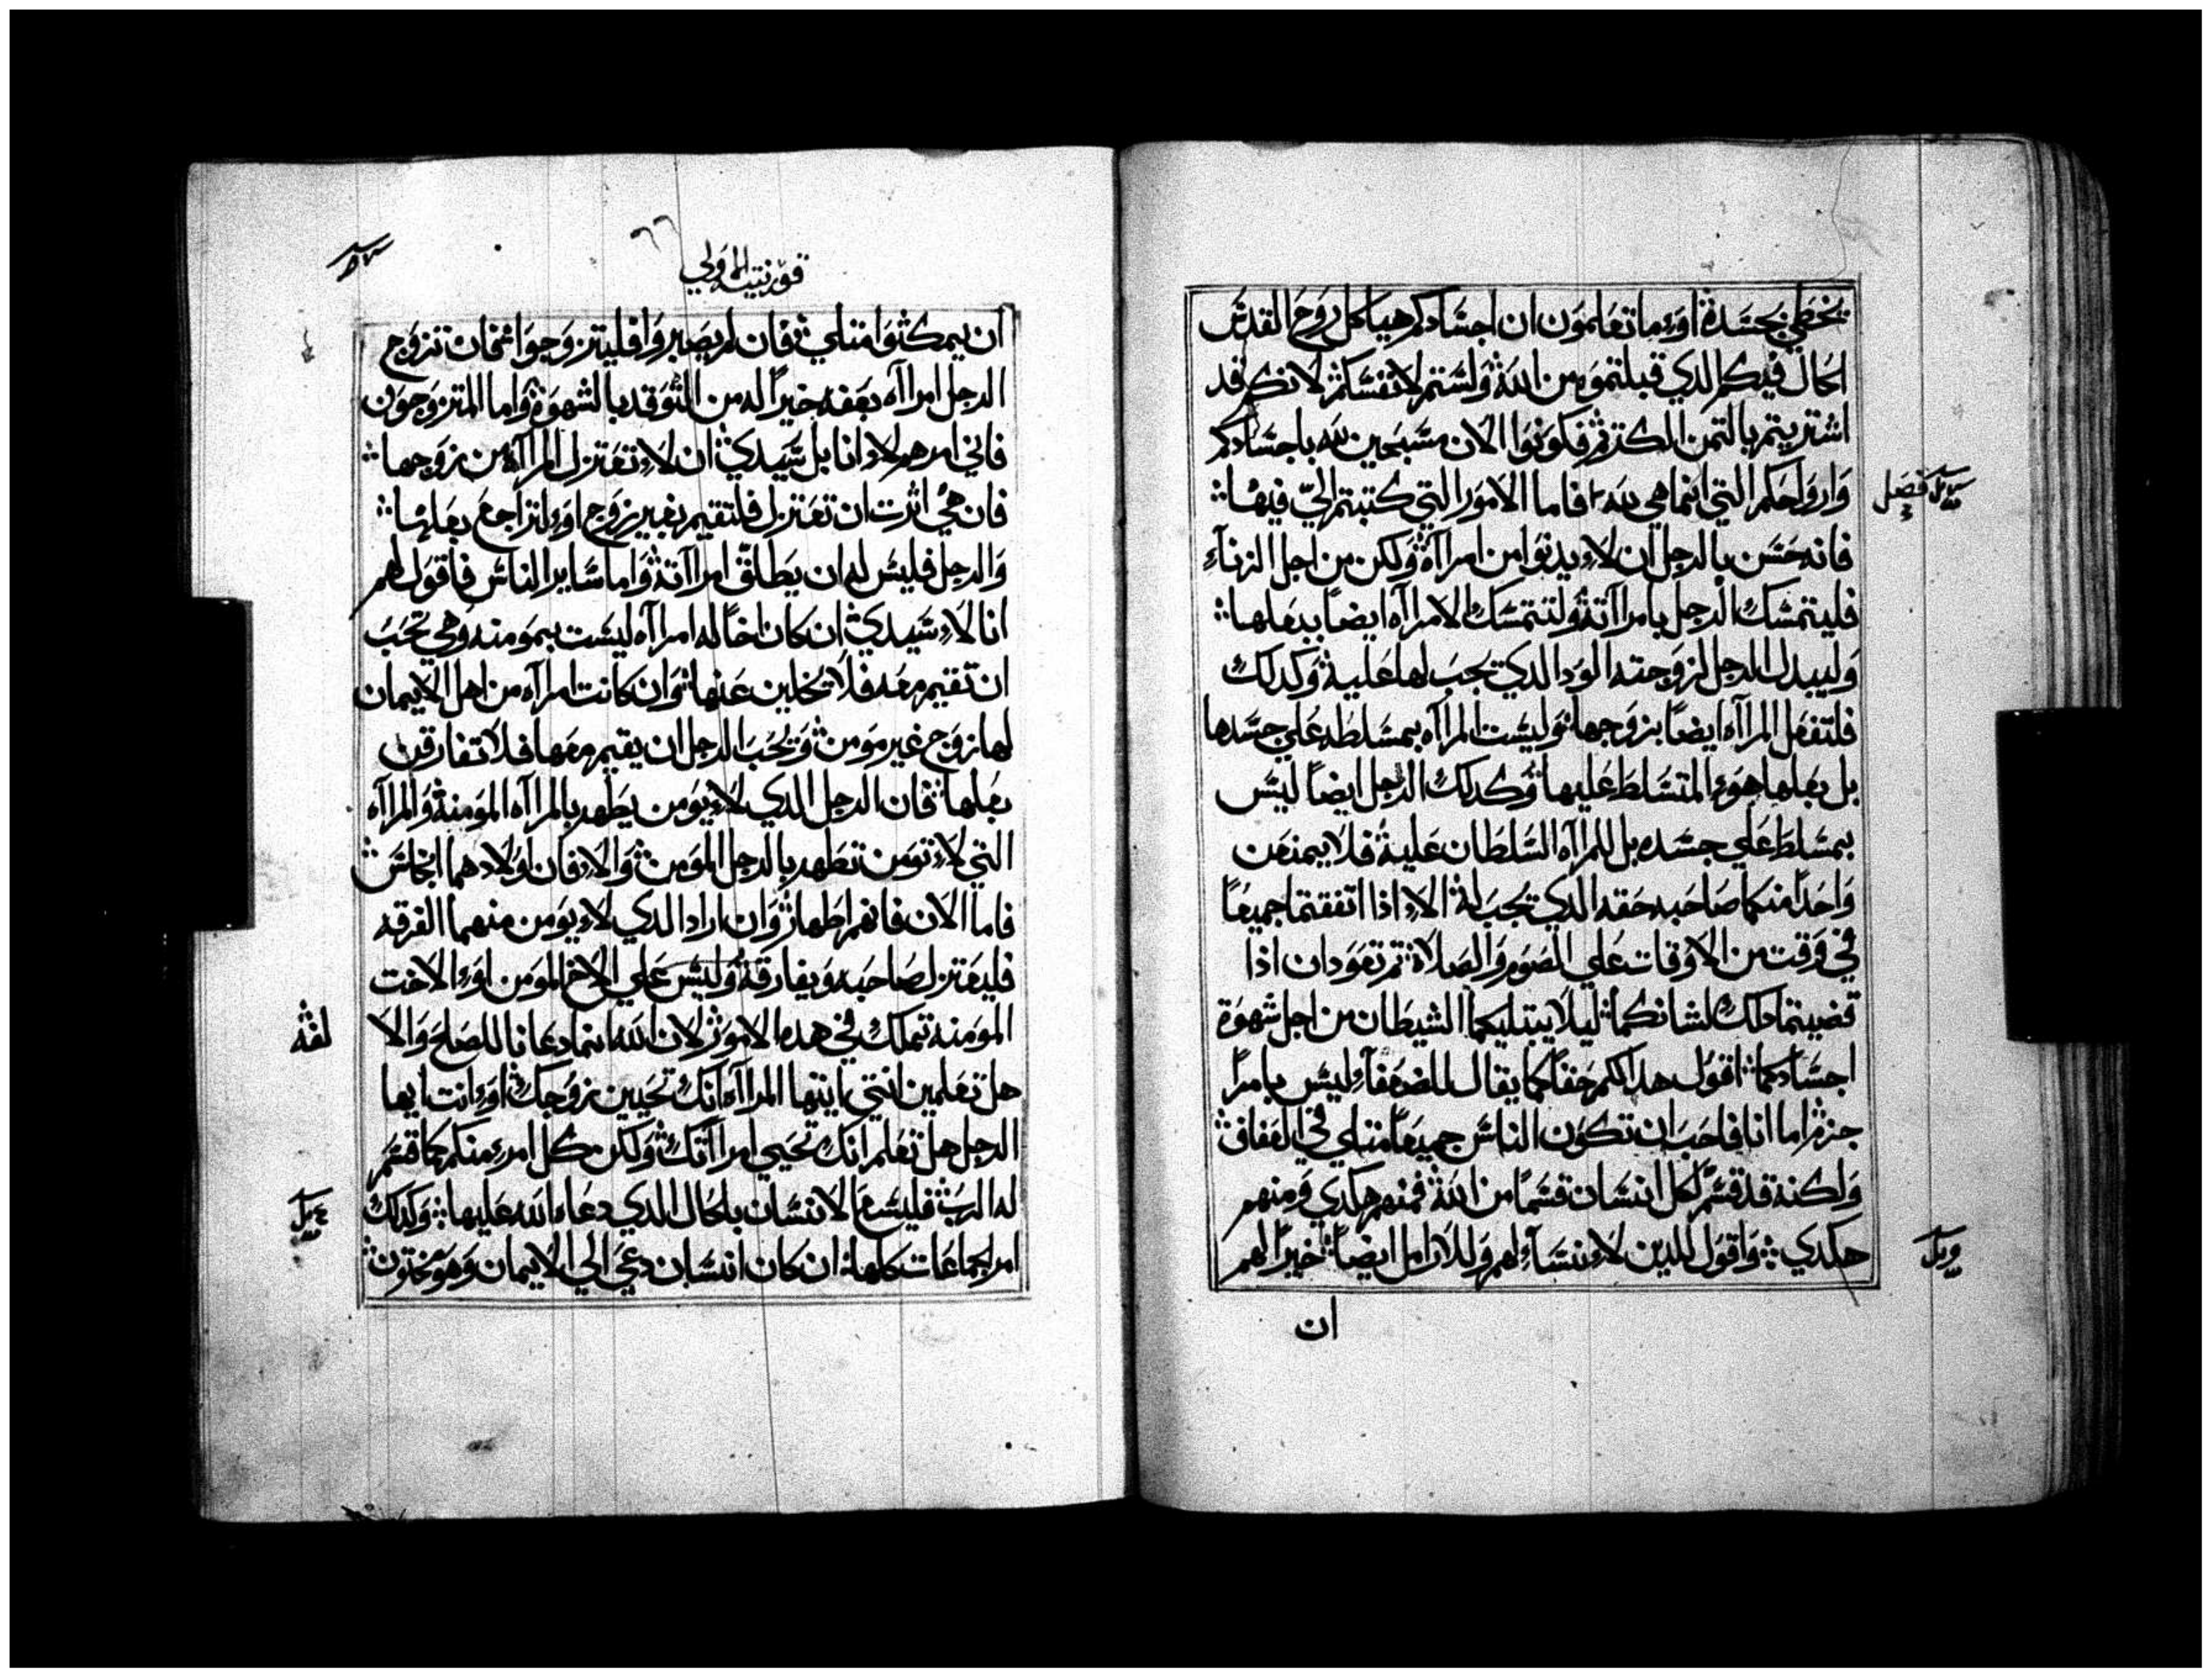 يخطي بجسده اوما تعلمون ان اجسادكم هياكل روح القدس
الحال فيكم الدي قبلتموه من الله ولستم لانفسكم لانكم قد
اشتريتم بالتمن الكتر فكونوا الان مسبحين لله باجسادكم
وارواحكم التي انما هي لله فاما الامور التي كتبتم الي فيها
فصل
فانه حسن بالرجل ان لا يدنوا من امراة ولكن من اجل الزناء
فليتمسك الرجل بامراته ولتتمسك الامراه ايضا ببعلها
وليبدل الرجل لزوجته الود الدي يجب لها عليه وكدلك
فلتفعل المراه ايضا بزوجها وليست المراه بمسلطه علي جسدها
بل بعلها هو المتسلط عليها وكدلك الرجل ايضا ليس
بمسلط علي جسده بل للمراه السلطان عليه فلا يمنعن
واحدا منكما صاحبه حقه الدي يجب له الا ادا اتفقتما جميعا
في وقت من الاوقات علي الصوم والصلاة تم تعودان اذا
قضيتما دلك لشانكما ليلا يبتليكما الشيطان من اجل شهوة
اجسادكما اقول هدا لكم حقا كما يقال للضعفاء ليس بامرا
جزم اما انا فاحب ان تكون الناس جميعا متلي في العفاف
ولكنه قد قسم لكل انسان قسما من الله فمنهم هكدي ومنهم
هكدي واقول للدين لا نساء لهم وللارامل ايضا خيرا لهم
ان
قورنتيه الاولي
ان يمكثوا متلي فان لم يصبروا فليتزوجوا فان تزوج
الرجل امراه بعفه خيرا له من التوقد بالشهوة واما المتزوجون
فاني امرهم لا انا بل سيدي ان لا تعتزل المراة من زوجها
فان هي اثرت ان تعتزل فلتقيم بغير زوج او لتراجع بعلها
والرجل فليس له ان يطلق امراته واما ساير الناس فاقول لهم
انا لا سيدي ان كان اخا له امراه ليست بمومنه وهي تحب
ان تقيم معه فلا يخلين عنها وان كانت امراه من اهل الايمان
لها زوج غير مومن ويحب الرجل ان يقيم معها فلا تفارقن
بعلها فان الرجل الدي لا يومن يطهر بالمراه المومنة والمراه
التي لا تومن تطهر بالرجل المومن والا فان اولادهما انجاس
فاما الان فانهم اطهار وان اراد الدي لا يومن منهما الفرقه
فليعتزل صاحبه ويفارقه وليس علي الاخ المومن او الاخت
المومنه تملك في هده الامور لان الله انما دعانا للصلح والا
هل تعلمين انتي ايتها المراه انك تحيين زوجك او انت ايها
الرجل هل تعلم انك تحيي امراتك ولكن كل امرء منكم كما قسم
له الرب فليسع الانسان بالحال الدي دعاه الله عليها وكدلك
امر الجماعات كلها ان كان انسان دعي الي الايمان وهو مختون